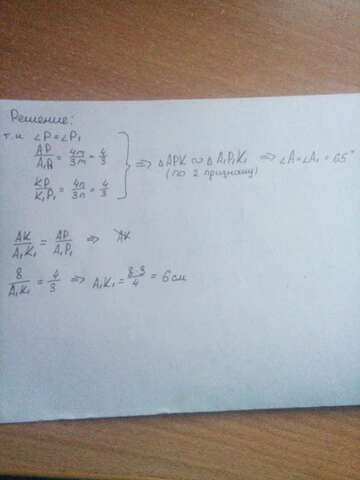 Решение:
т.к ∠P=∠P₁
AP/A₁P₁ = 4m/3m = 4/3
KP/K₁P₁ = 4n/3n = 4/3
} ⇒ △APK ∾ △A₁P₁K₁ ⇒ ∠A=∠A₁=65°
(по 2 признаку)
AK/A₁K₁ = AP/A₁P₁ ⇒ AK
8/A₁K₁ = 4/3 ⇒ A₁K₁ = 8·3/4 = 6см